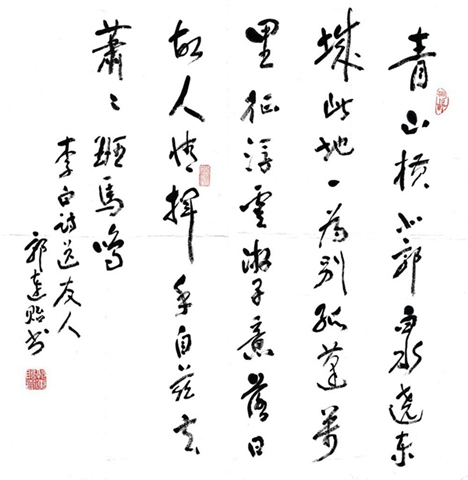 青山横北郭白水遶东
城此地一为别孤蓬萬
里征浮雲游子意落日
故人情挥手自兹去
萧々班馬鸣
李白诗送友人
郭達贻书